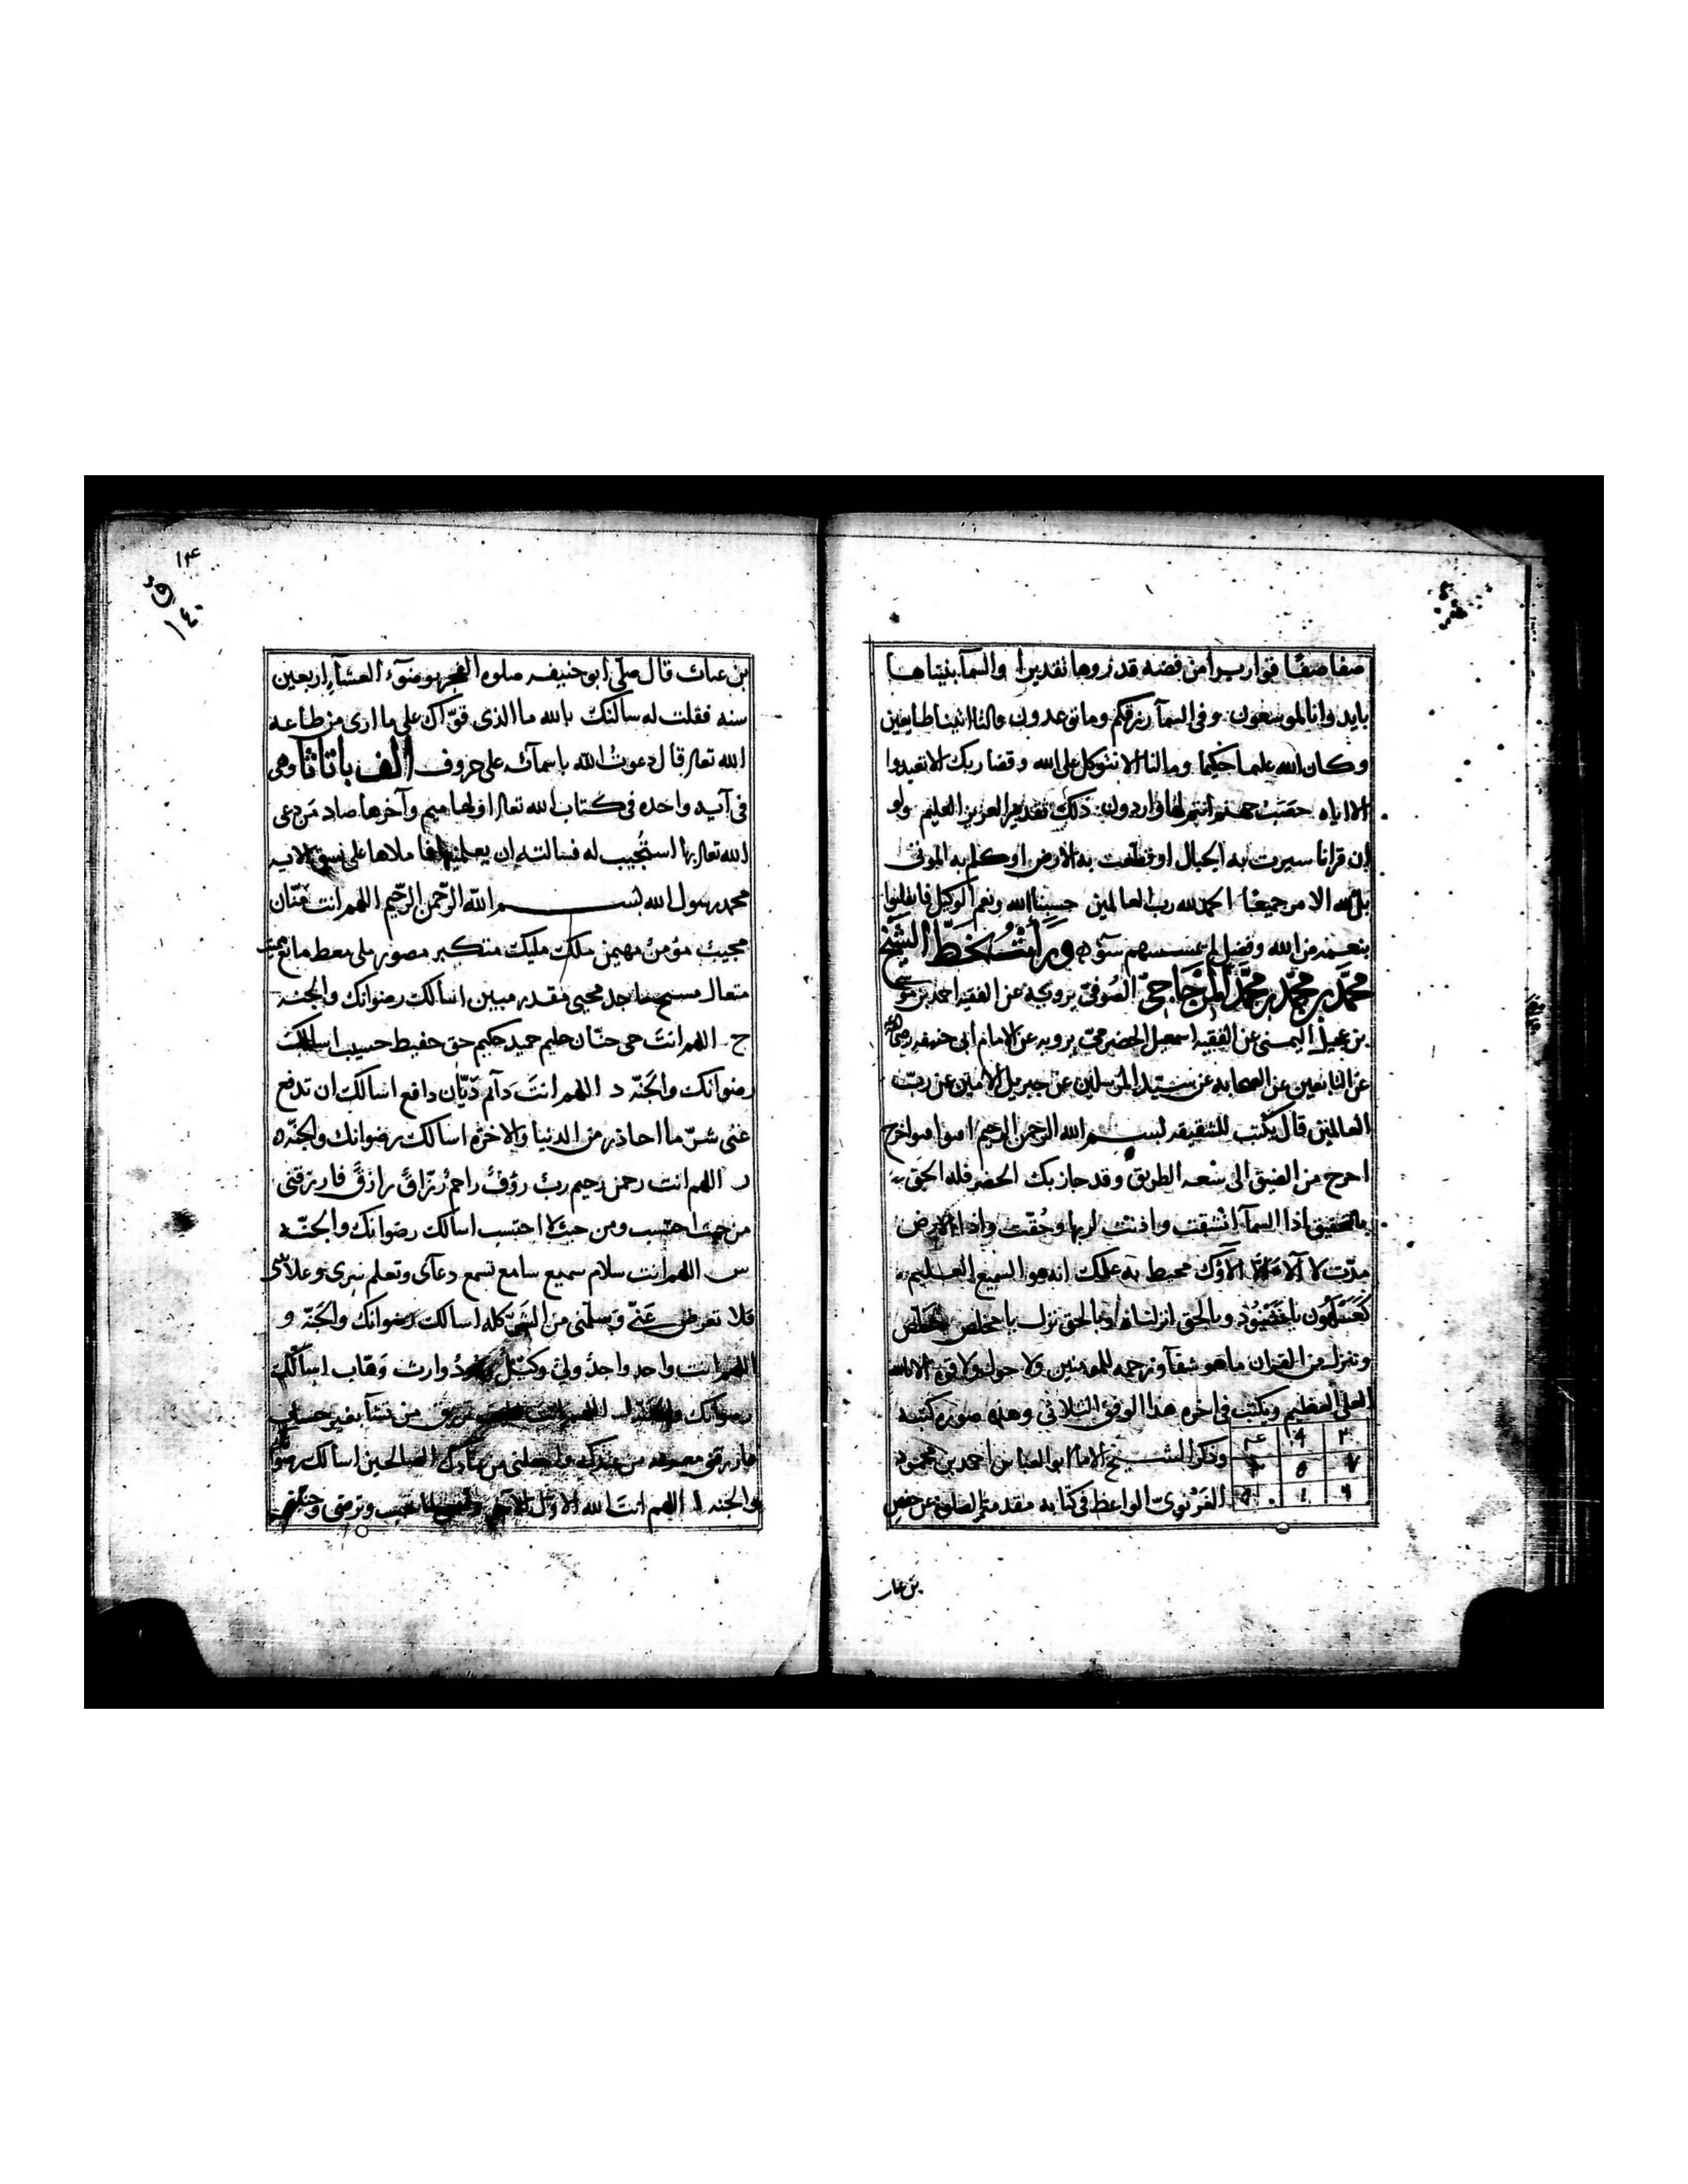 صفا صفا قواريرا من فضه قدروها تقديرا والسمآ بنيناها
بايد وانا لموسعون وفى السمآ رزقكم وما توعدون قالتا اتينا طايعين
وكان الله عليما حكيما ومالنا الا نتوكل على الله وقضا ربك الا تعبدوا
الا اياه حصَبُ جهنم انتم لها واردون ذلك تقدير العزيز العليم ولو
ان قرانا سيرت به الجبال او قطعت به الارض او كلم به الموتى
بل لله الامر جميعًا الحمد لله رب العالمين حسبنا الله ونعم الوكيل فانقلبوا
بنعمة من الله وفضل لم يمسسهم سوٓء ورأيتُ بخطّ الشيخ
محمّد بن محمّد بن محمّد المزجاجىّ الصُوفىّ يرويه عن الفقيه احمد بن موسى
بن عجيل اليمنى عن الفقيه اسمعيل الحضرمىّ يرويه عن الامام ابى حنيفه رضى الله
عن التابعين عن الصحابه عن سيّد المرسلين عن جبريل الامين عن ربّ
العالمين قال يكتب للشقيقه بسم الله الرحمن الرحيم
اخرج من الضيق الى سعه الطريق وقد جاز بك الخضر فله الحق
بالتحقيق اذا السمآ انشقت واذنت لربها وحُقّت واذا الارض
مدّت لا آلآ الآؤك محيط به علمك انه هو السميع العليم
وبالحق انزلناه وبالحق نزل يا مخلص
وننزل من القران ما هو شفآ ورحمه للمومنين ولا حول ولا قوه الا بالله
العلى العظيم ويكتب فى اخره هذا الوفق الثلاثي وهذه صورة كتبه
٢ ٩ ٤
٧ ٥
٦ ١
وذكر الشيخ الامام ابو العباس احمد بن محمود
الغزنوىّ الواعظ فى كتابه مقدمة الصلوة عن حفص
بن عبار
١٤٠
بن عباث قال صلّى ابو حنيفه صلوه الفجر بوضوٓء العشآء اربعين
سنه فقلت له سالتك بالله ما الذى قوّاك على ما ارى من طاعة
الله تعالى قال دعوتُ الله باسمآئه على حروف ألف باتاثا وهى
فى آيه واحده فى كتاب الله تعالى اولها ميم وآخرها صاد مَن دعى
الله تعالى بها استُجيب له فسالته ان يعلمنيها فاملاها على نسق الايه
محمد رسول الله بسم اللّه الرّحمن الرّحيم اللهم انت منّان
مجيبٌ مؤمنٌ مهيمن ملك مليك متكبر مصور ملى معط مانع
متعال مسبح ماجد محيى مقتدر مبين اسالك رضوانك والجنة
ج اللهم انتَ حى حنّان حليم حميد حكيم حق حفيظ حسيب اسالك
رضوانك والجَنّه د اللهم انتَ دَآئم دَيّان دافع اسالك ان تدفع
عنى شرّ ما احاذر من الدنيا والاخرة اسالك رضوانك والجنّه
ر اللهم انت رحمن رحيم ربٌ رؤفٌ راحمٌ رزّاقٌ رازقٌ فارزقنى
من حيث احتسب ومن حيثُ لا احتسب اسالك رضوانك والجنّه
س اللهم انت سلام سميع سامع تسمع دعآى وتعلم سرى وعلانيتى
فلا تعرض عنّى وَسلّمنى من الشرّ كله اسالك رضوانك والجَنّه و
اللهم انت واحد واجدٌ ولىّ وكيل ودودٌ وارث وَهّاب اسالك
رضوانك والجنة اللهم انت ترزق من تشآ بغير حساب
فارزقنى من عندك واجعلنى من عبادك الصالحين اسالك رضوانك
والجنه ا اللهم انتَ الله الاوّل الآخر تحب وترضى وجنّتك